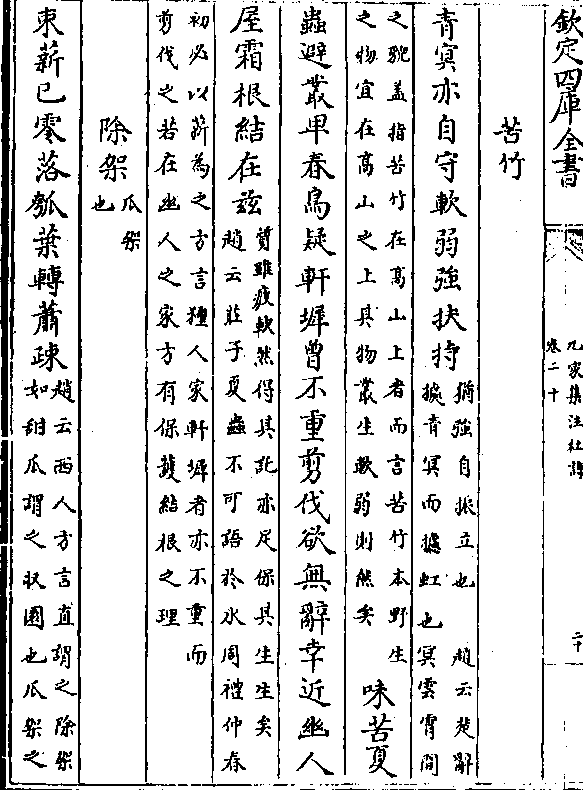 欽定四庫全書
九家集注杜詩
卷二十
二十
苦竹
青冥亦自守軟弱強扶持
猶強自振立也 趙云楚辭
據青冥而攄虹也冥雲霄間
之貌蓋指苦竹在高山上者而言苦竹本野生
之物宜在高山之上其物叢生軟弱則然矣
味苦夏
蟲避叢卑春鳥疑軒墀曾不重剪伐欲無辭幸近幽人
屋霜根結在兹
質雖疲軟然得其託亦足保其生生矣
趙云莊子夏蟲不可語於氷周禮仲春
初必以薪為之方言種人家軒墀者亦不重而
剪伐之若在幽人之家方有保護結根之理
除架
瓜架
也
束薪已零落瓠葉轉蕭疎
趙云西人方言直謂之除架
如甜瓜謂之収園也瓜架之